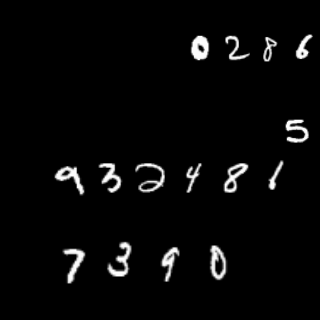 0286
5
932481
7390